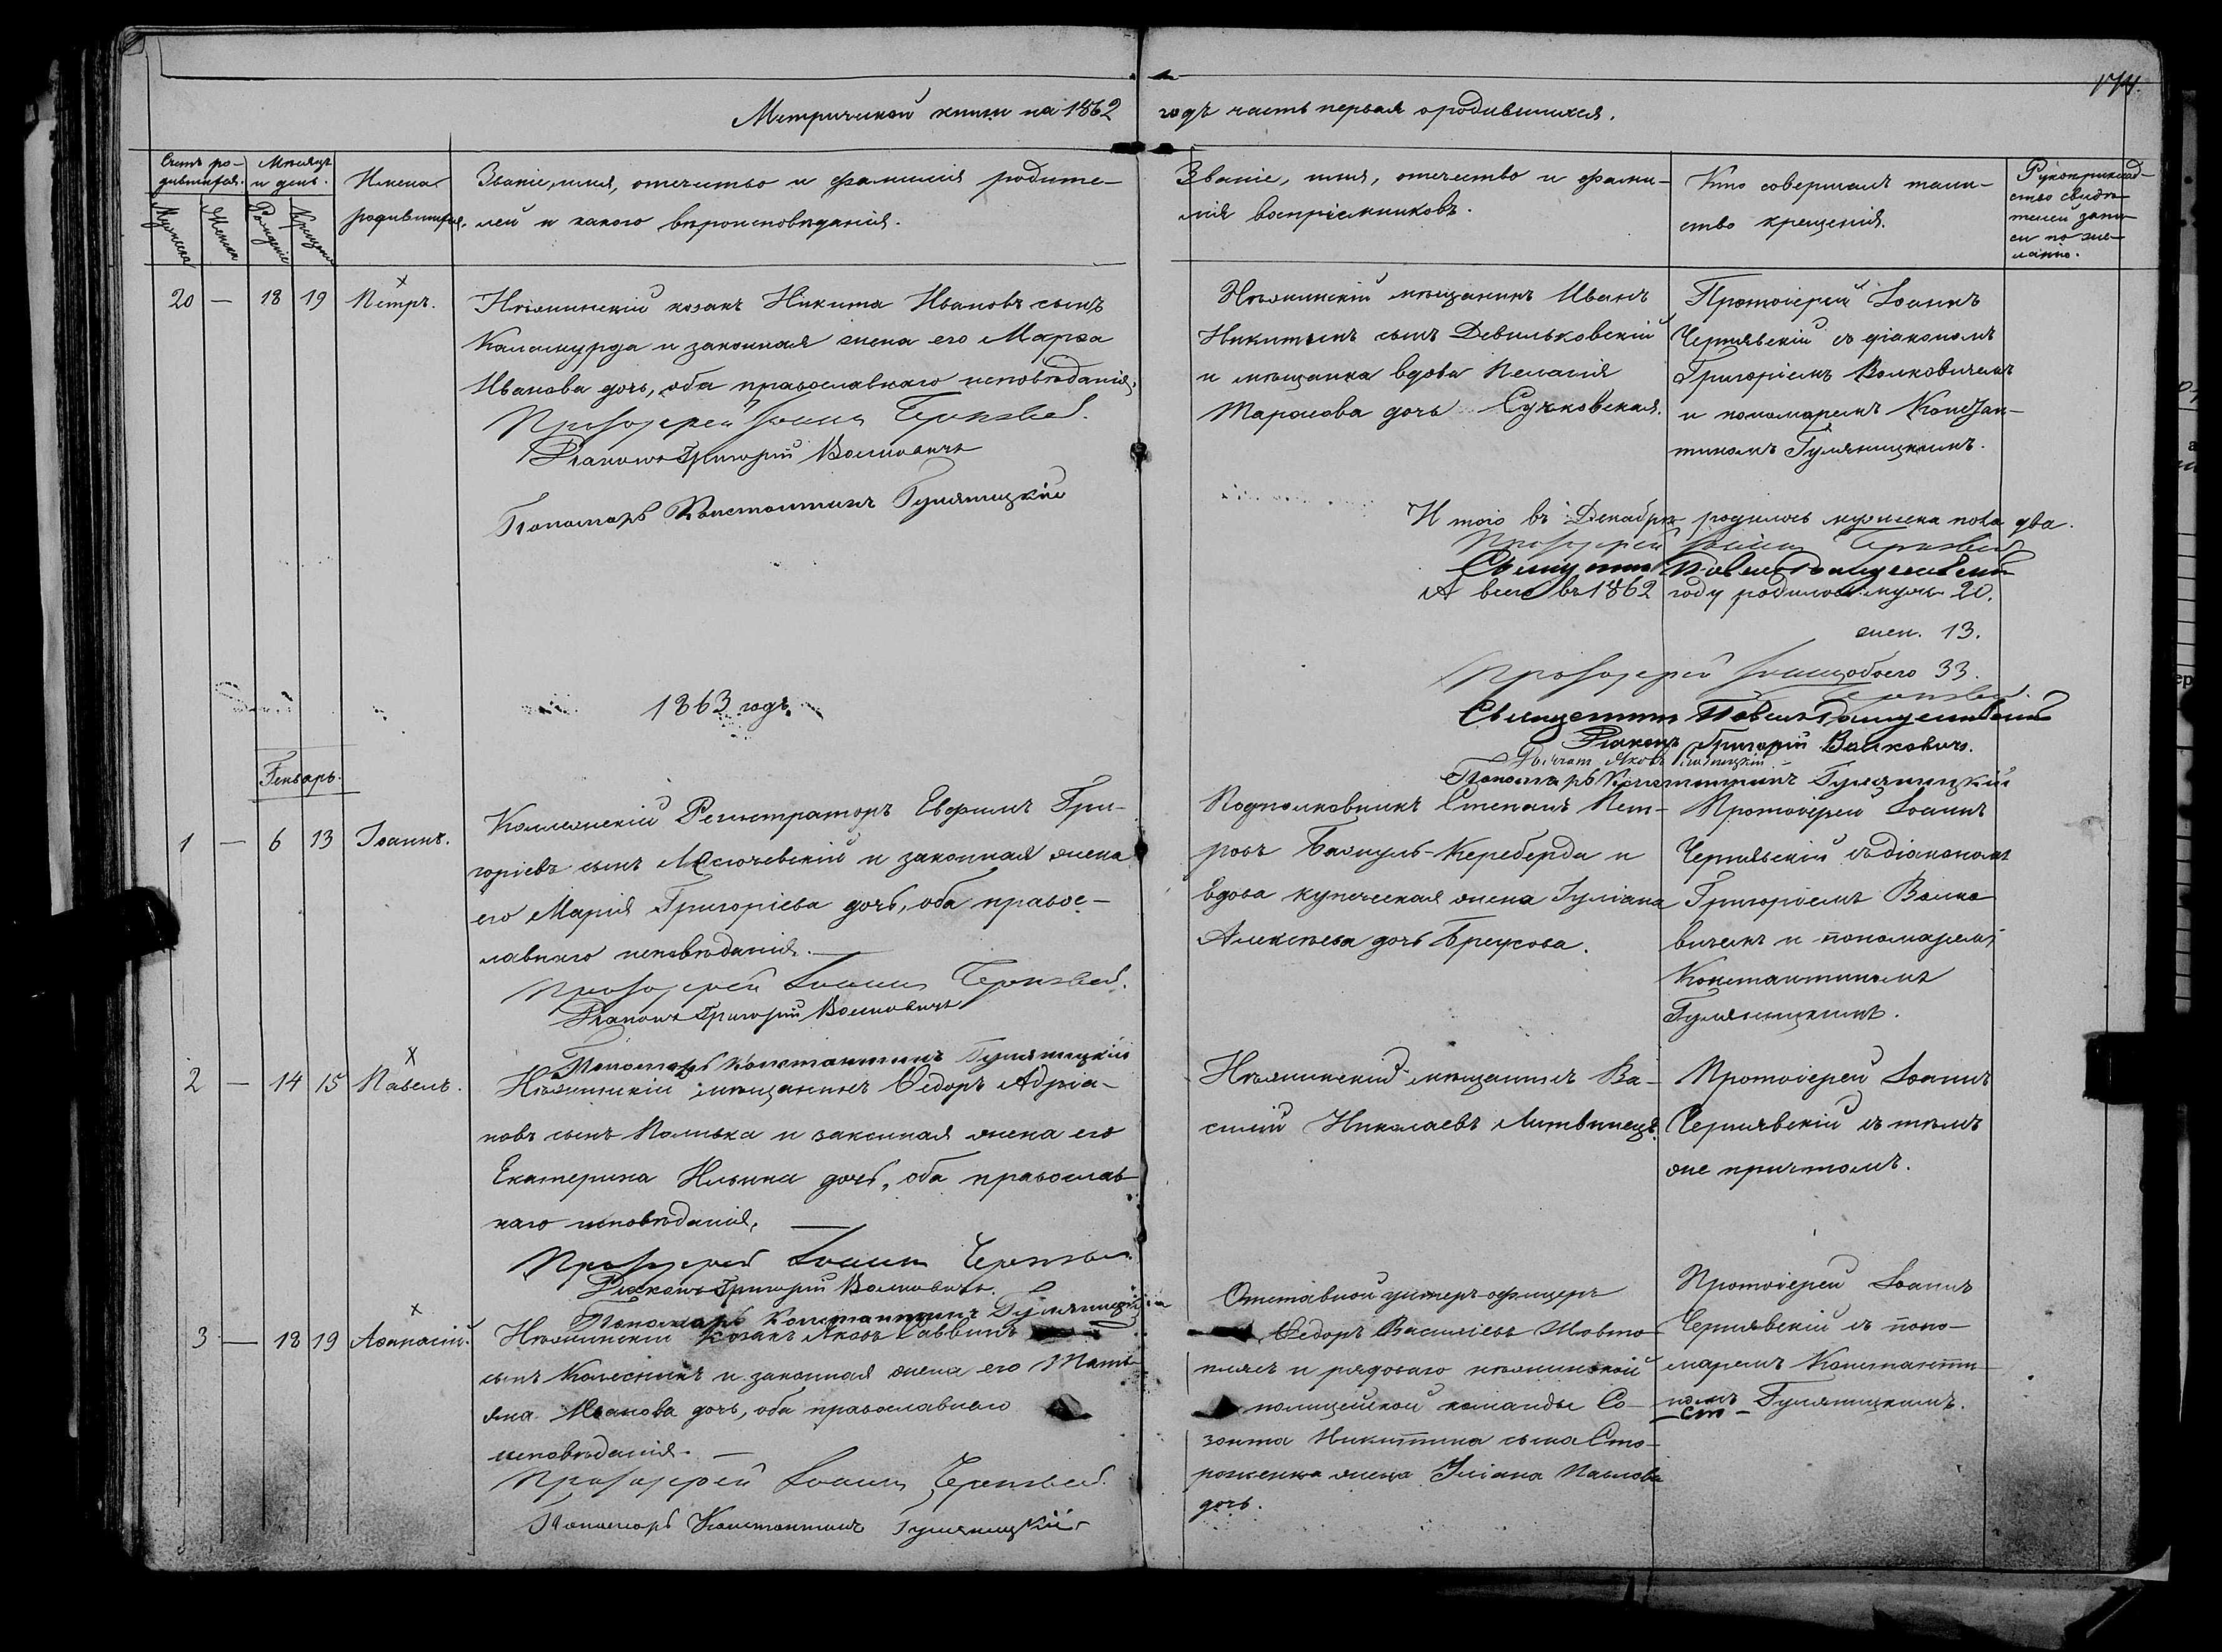 174.
Метрической книги на 1862 годъ часть первая о родившихся.
Счетъ ро-
дившихся.
Мѣсяцъ
и день.
Имена
родившихся.
Мужеска
Женска
Рожденіе
Крещеніе
Званіе, имя, отчество и фамилія родите-
лей и какого вѣроисповѣданія.
Званіе, имя, отчество и фами-
лія воспріемниковъ.
Кто совершалъ таин-
ство крещенія.
Рукоприклад-
ство свидѣ-
телей запи-
си по же-
ланію.
20 — 18 19 Петръ.
Нѣжинскій козакъ Никита Ивановъ сынъ
и законная жена его Марѳа
Иванова дочь, оба православнаго исповѣданія.
Протоіерей Іоаннъ
Діаконъ Григорій Волковичъ
Пономарь Константинъ Гуляницкій
Нѣжинскій мѣщанинъ Иванъ
Никитинъ сынъ Девильковскій
и мѣщанка вдова Пелагія
Тарасова дочь Сучковская.
Протоіерей Іоаннъ
Чернявскій съ діакономъ
Григоріемъ Волковичемъ
и пономаремъ Констан-
тиномъ Гуляницкимъ.
Итого въ Декабрѣ родилось мужеска пола два.
Протоіерей Іоаннъ
Священникъ Павелъ
А всего въ 1862 году родилось муж. 20.
жен. 13.
Протоіерей Іоаннъ обоего 33.
Священникъ Павелъ
Діаконъ Григорій Волковичъ.
Пономарь Константинъ Гуляницкій
1863 годъ.
Генварь.
1 — 6 13 Іоаннъ.
Коллежскій Регистраторъ Евфимъ Гри-
горіевъ сынъ и законная жена
его Марія Григоріева дочь, оба правос-
лавнаго исповѣданія.
Протоіерей Іоаннъ
Діаконъ Григорій Волковичъ
Пономарь Константинъ Гуляницкій
Подполковникъ Степанъ Пет-
ровъ и
вдова купеческая жена Іуліана
Алексѣева дочь
Протоіерей Іоаннъ
Чернявскій съ діакономъ
Григоріемъ Волко-
вичемъ и пономаремъ
Константиномъ
Гуляницкимъ.
2 — 14 15 Павелъ.
Нѣжинскій мѣщанинъ Ѳедоръ Адріа-
новъ сынъ и законная жена его
Екатерина Ильина дочь, оба православ-
наго исповѣданія.
Протоіерей Іоаннъ
Діаконъ Григорій Волковичъ.
Пономарь Константинъ Гуляницкій
Нѣжинскій мѣщанинъ Ва-
силій Николаевъ Литвинецъ.
Протоіерей Іоаннъ
Чернявскій съ тѣмъ
же причтомъ.
3 — 18 19 Аѳанасій.
Нѣжинскій козакъ Яковъ Саввинъ
сынъ Колесникъ и законная жена его Тать-
яна Иванова дочь, оба православнаго
исповѣданія.
Протоіерей Іоаннъ
Пономарь Константинъ Гуляницкій
Отставной унтеръ-офицеръ
Ѳедоръ Василіевъ Шовто-
пляс и рядоваго нѣжинской
полицейской команды Со-
зонта Никитина сына Сто-
роженка жена Уліана Павлова
дочь.
Протоіерей Іоаннъ
Чернявскій съ поно-
маремъ Константи-
номъ Гуляницкимъ.